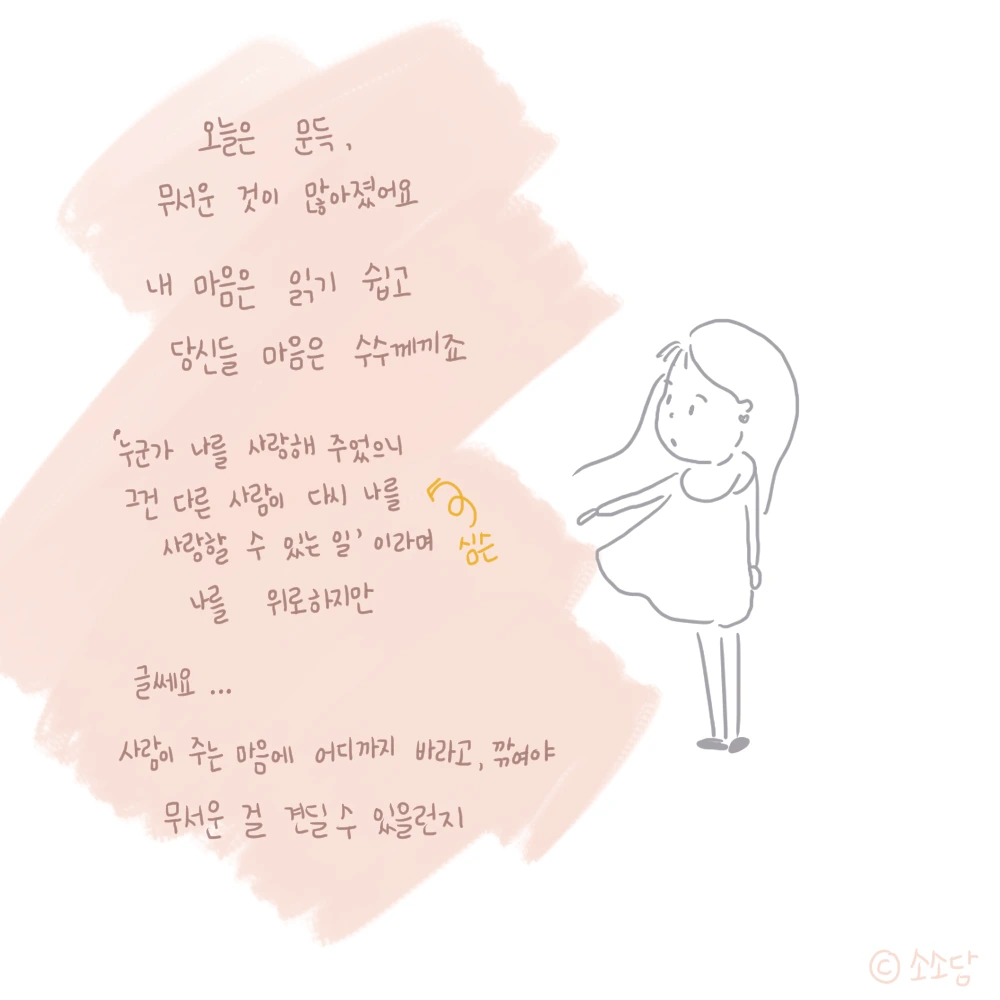 오늘은 문득,
무서운 것이 많아졌어요
내 마음은 읽기 쉽고
당신들 마음은 수수께끼죠
'누군가 나를 사랑해 주었으니
그건 다른 사람이 다시 나를
사랑할 수 있는 일' 이라며
싶은
나를 위로하지만
글쎄요 ...
사람이 주는 마음에 어디까지 바라고, 깎여야
무서운 걸 견딜 수 있을런지
© 소소담